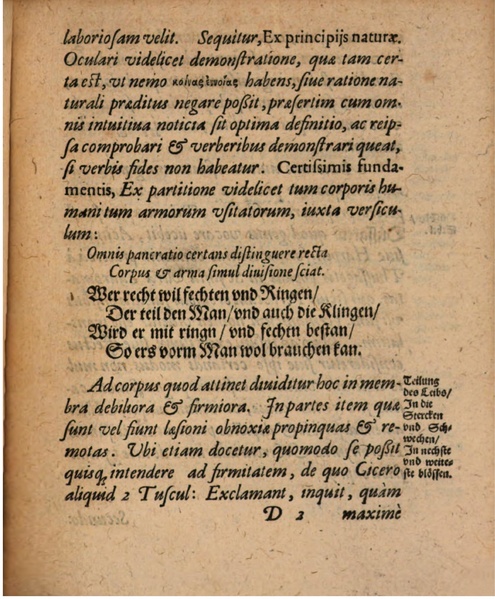 laboriosam velit. Sequitur, Ex principijs naturæ.
Oculari videlicet demonstratione, quæ tam cer-
ta est, vt nemo κοινὰς ἐννοίας habens, siue ratione na-
turali præditus negare poßit, præsertim cum om-
nis intuitiua noticia sit optima definitio, ac reip-
sa comprobari & verberibus demonstrari queat,
si verbis fides non habeatur. Certissimis funda-
mentis, Ex partitione videlicet tum corporis hu-
mani tum armorum vsitatorum, iuxta versicu-
lum:
Omnis pancratio certans distinguere recta
Corpus & arma simul diuisione sciat.
Wer recht wil fechten vnd Ringen/
Der teil den Man/ vnd auch die Klingen/
Wird er mit ringn/ vnd fechtn bestan/
So ers vorm Man wol brauchen kan.
Ad corpus quod attinet diuiditur hoc in mem-
bra debiliora & firmiora. In partes item quæ
sunt vel fiunt læsioni obnoxiæ propinquas & re-
motas. Vbi etiam docetur, quomodo se poßit
quisq; intendere ad firmitatem, de quo Cicero
aliquid 2 Tuscul: Exclamant, inquit, quàm
D 2 maximè
Teilung
des Leibs/
In die
Stercken
vnd Sch-
wechen/
In nechste
vnd weite-
ste blössen.